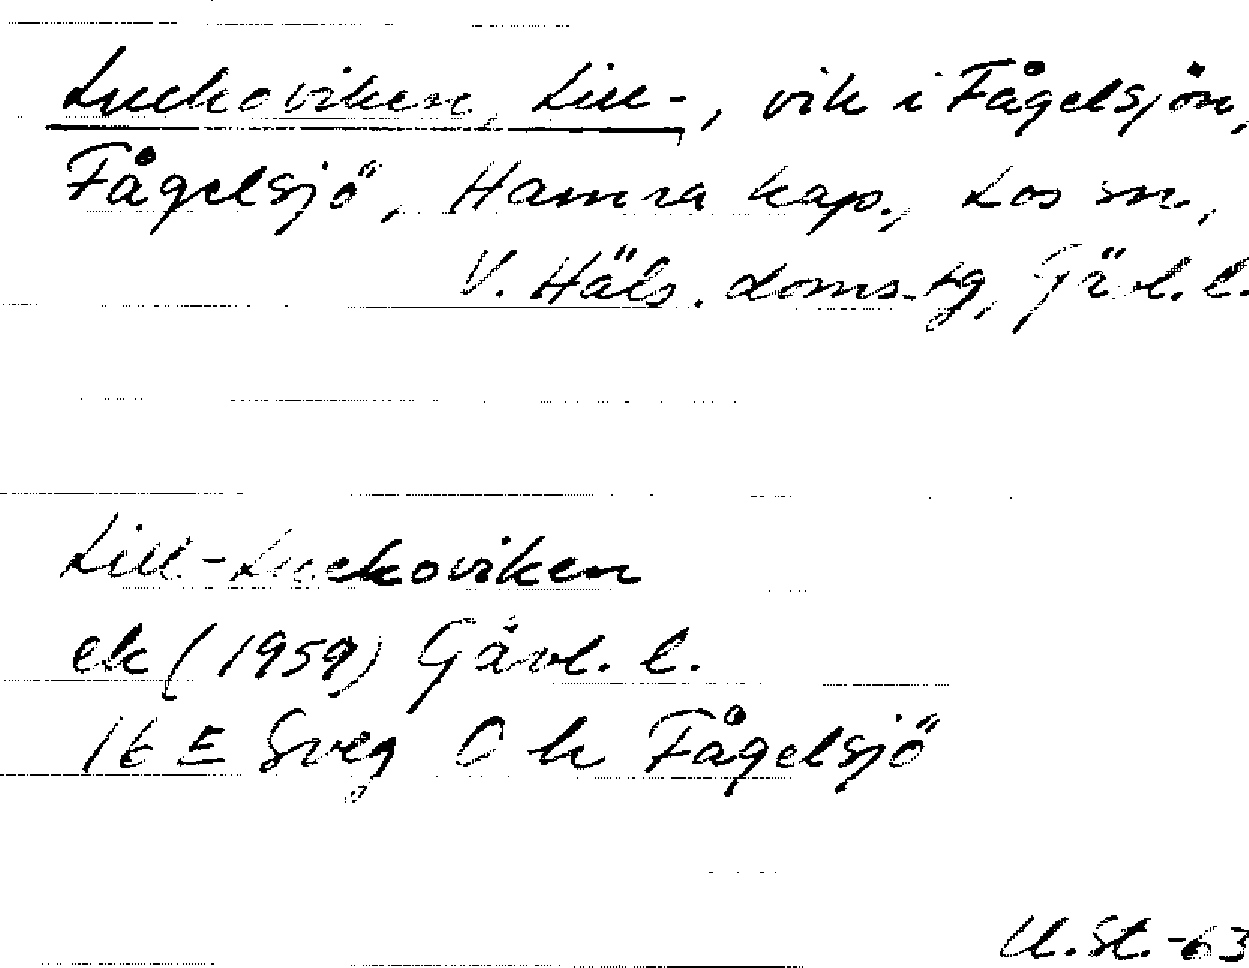 Luckoviken, Lill-, vik i Fågelsjön,
Fågelsjö, Hamra kap., Los sn.,
V. Häls. doms.tg, Gävl. l.
Lill-Luckoviken
ek (1959) Gävl. l.
16 E Sveg O k Fågelsjö
U.St.-63